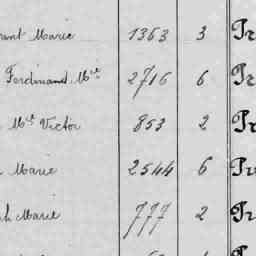 Marie 1363 3 Pr
Ferdinand Mel 2716 6 Pr
Mel Victor 853 2 Pr
Marie 2544 6 Pr
Marie 777 2 Pr